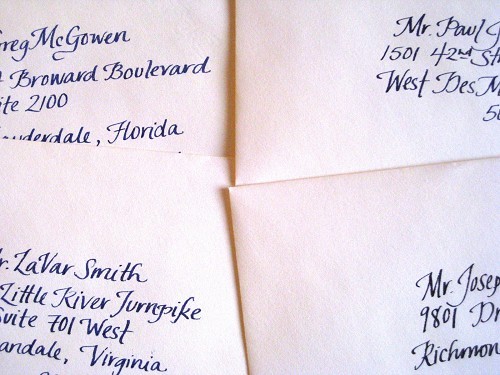 Greg McGowen
Broward Boulevard
Suite 2100
Lauderdale, Florida
Mr. Paul
1501 42nd
West Des
Mr. LaVar Smith
Little River Turnpike
Suite 701 West
Virginia
Mr.
9801